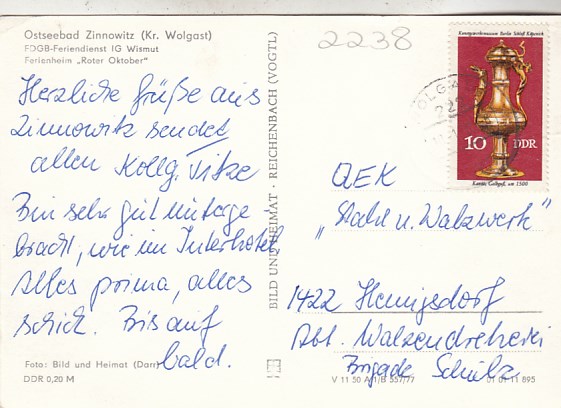 Ostseebad Zinnowitz (Kr. Wolgast)
FDGB-Feriendienst IG Wismut
Ferienheim „Roter Oktober"
Herzliche Grüße aus
Zinnowitz sendet
allen Kollg. Titze
Bin sehr gut unterge-
bracht, wie im Interhotel
Alles prima, alles
schick. Bis auf
bald.
Foto: Bild und Heimat (Darr)
DDR 0,20 M
BILD UND HEIMAT · REICHENBACH (VOGTL)
2238
Kunstgewerbemuseum Berlin Schloß Köpenick
10 DDR
Kanne, Goldguß, um 1500
OLG
QEK
„Stahl u. Walzwerk"
1422 Hennigsdorf
Abt. Walzendreherei
Brigade Schulz
V 11 50 A 1/B 557/77
01 01 11 895